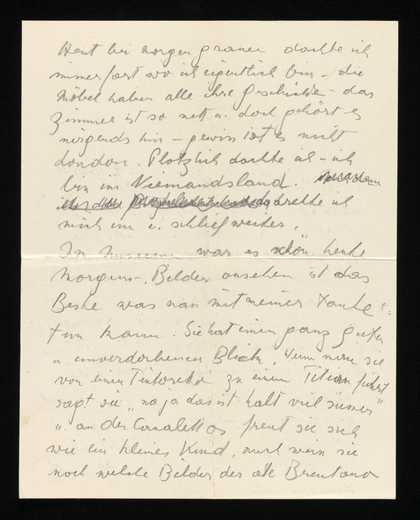 Heut bei morgengrauen dachte ich
immerfort wo ich eigentlich bin – die
Möbel haben alle ihre gschichte – das
Zimmer ist so nett u. doch gehört es
nirgends hin – gewiss ist es nicht
London. Plötzlich dachte ich – ich
bin im Niemandsland.
drehte ich
mich um u. schlief weiter.
Im Museum war es schön heute
Morgen –. Bilder ansehen ist das
Beste was man mit meiner Tante
tun kann. Sie hat einen ganz guten
u unverdorbenen Blick. Wenn man sie
von einem Tintoretto zu einem Titian führt
sagt sie „na ja das ist halt viel
u. an den Canalettos freut sie sich
wie ein kleines Kind, auch wenn sie
noch welche Bilder des alt Brentano